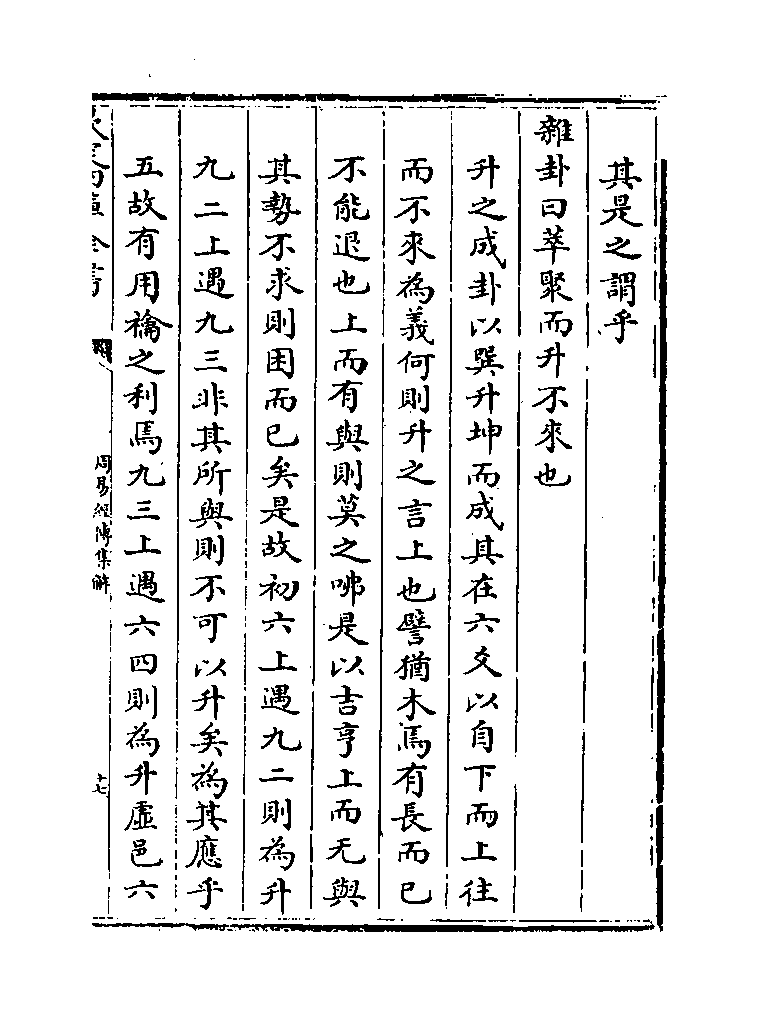 其是之謂乎
雜卦曰萃聚而升不來也
升之成卦以巽升坤而成其在六爻以自下而上往
而不來為義何則升之言上也譬猶木焉有長而已
不能退也上而有與則莫之咈是以吉亨上而无與
其勢不求則困而已矣是故初六上遇九二則為升
九二上遇九三非其所與則不可以升矣為其應乎
五故有用禴之利焉九三上遇六四則為升虛邑六
周易經傳集解
十七